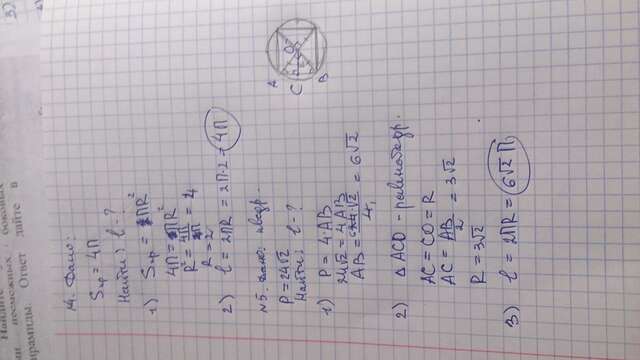 Найдите
ми несмежных боковых
ирамиды. Ответ дайте в
3)
№4. Дано:
Sкр = 4П
Найти: l-?
1) Sкр = ПR²
4П = ПR²
R² = 4П/П = 4
R = 2
2) l = 2ПR = 2П·2 = 4П
№5. Дано: квадр.
P = 24√2
Найти: l-?
1) P = 4·AB
24√2 = 4AB
AB = 24·√2/4 = 6√2
A
C
O
B
2) △ ACO - равнобедр.
AC = CO = R
AC = AB/2 = 3√2
R = 3√2
3) l = 2ПR = 6√2 П